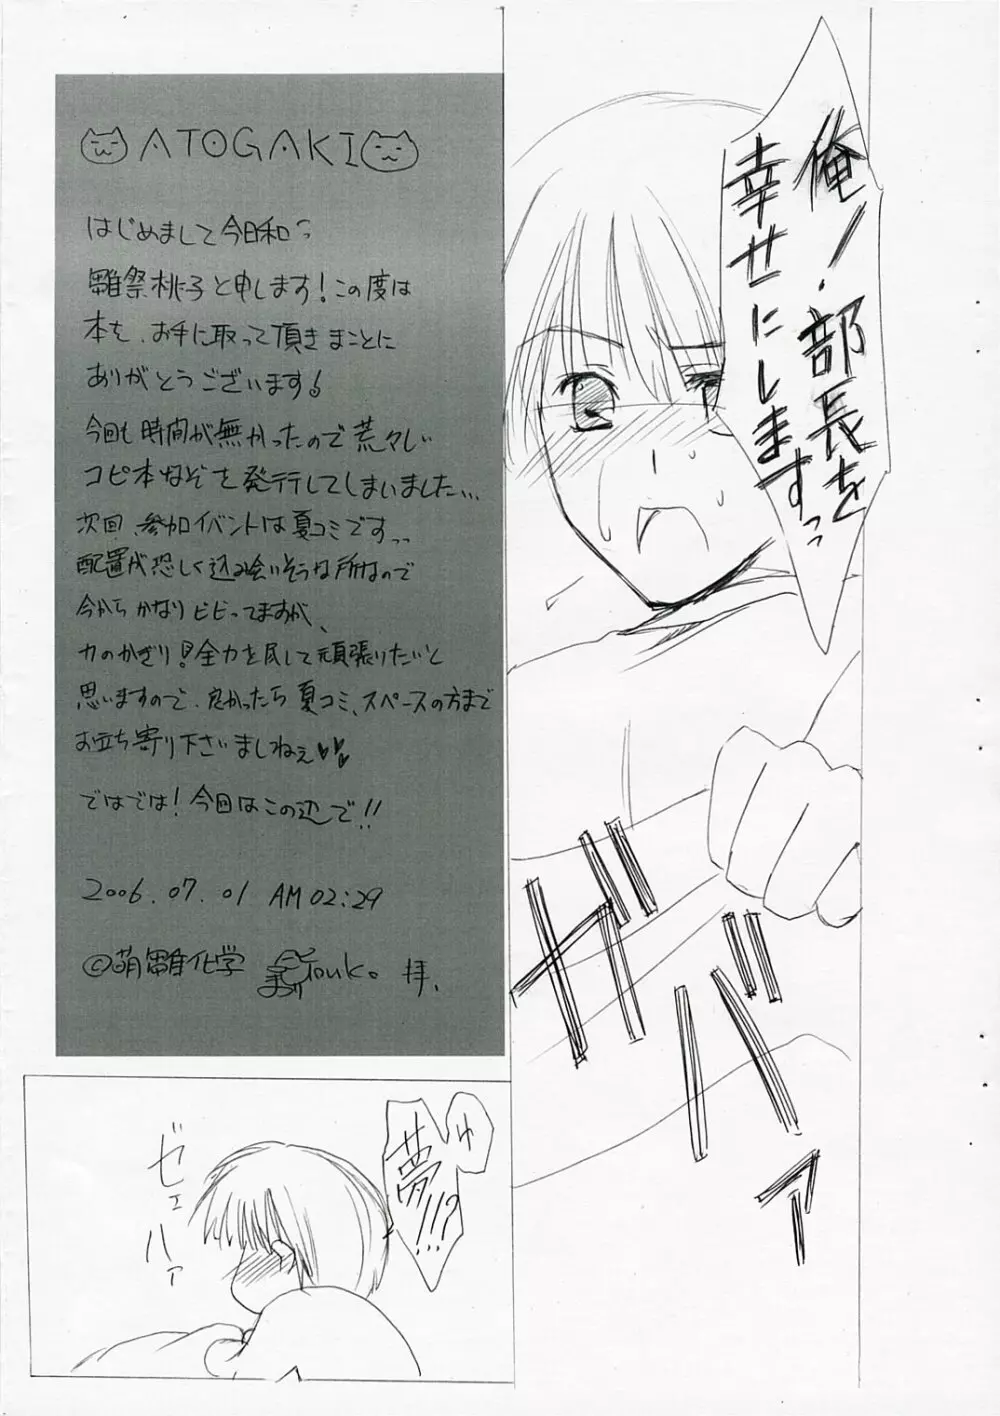 俺ノ、部長を
幸せにします
ガバァ
ATOGAKI
はじめまして今日和っ
雛祭桃子と申します!この度は
本を、お手に取って頂きまことに
ありがとうございます
今回も時間が無かったので荒々しい
コピ本なぞを発行してしまいました…
次回、参加イベントは夏コミですっ
配置が恐しく込み合いそうな所なので
今からかなりビビってますが、
力のかぎり!全力を尽して頑張りたいと
思いますので、良かったら夏コミ、スペースの方まで
お立ち寄り下さいましねぇ♥♥
ではでは!今回はこの辺で!!
2006.07.01 AM 02:29
©萌雛化学 拝、
ゆ
夢!!!?
ゼェ
ハァ